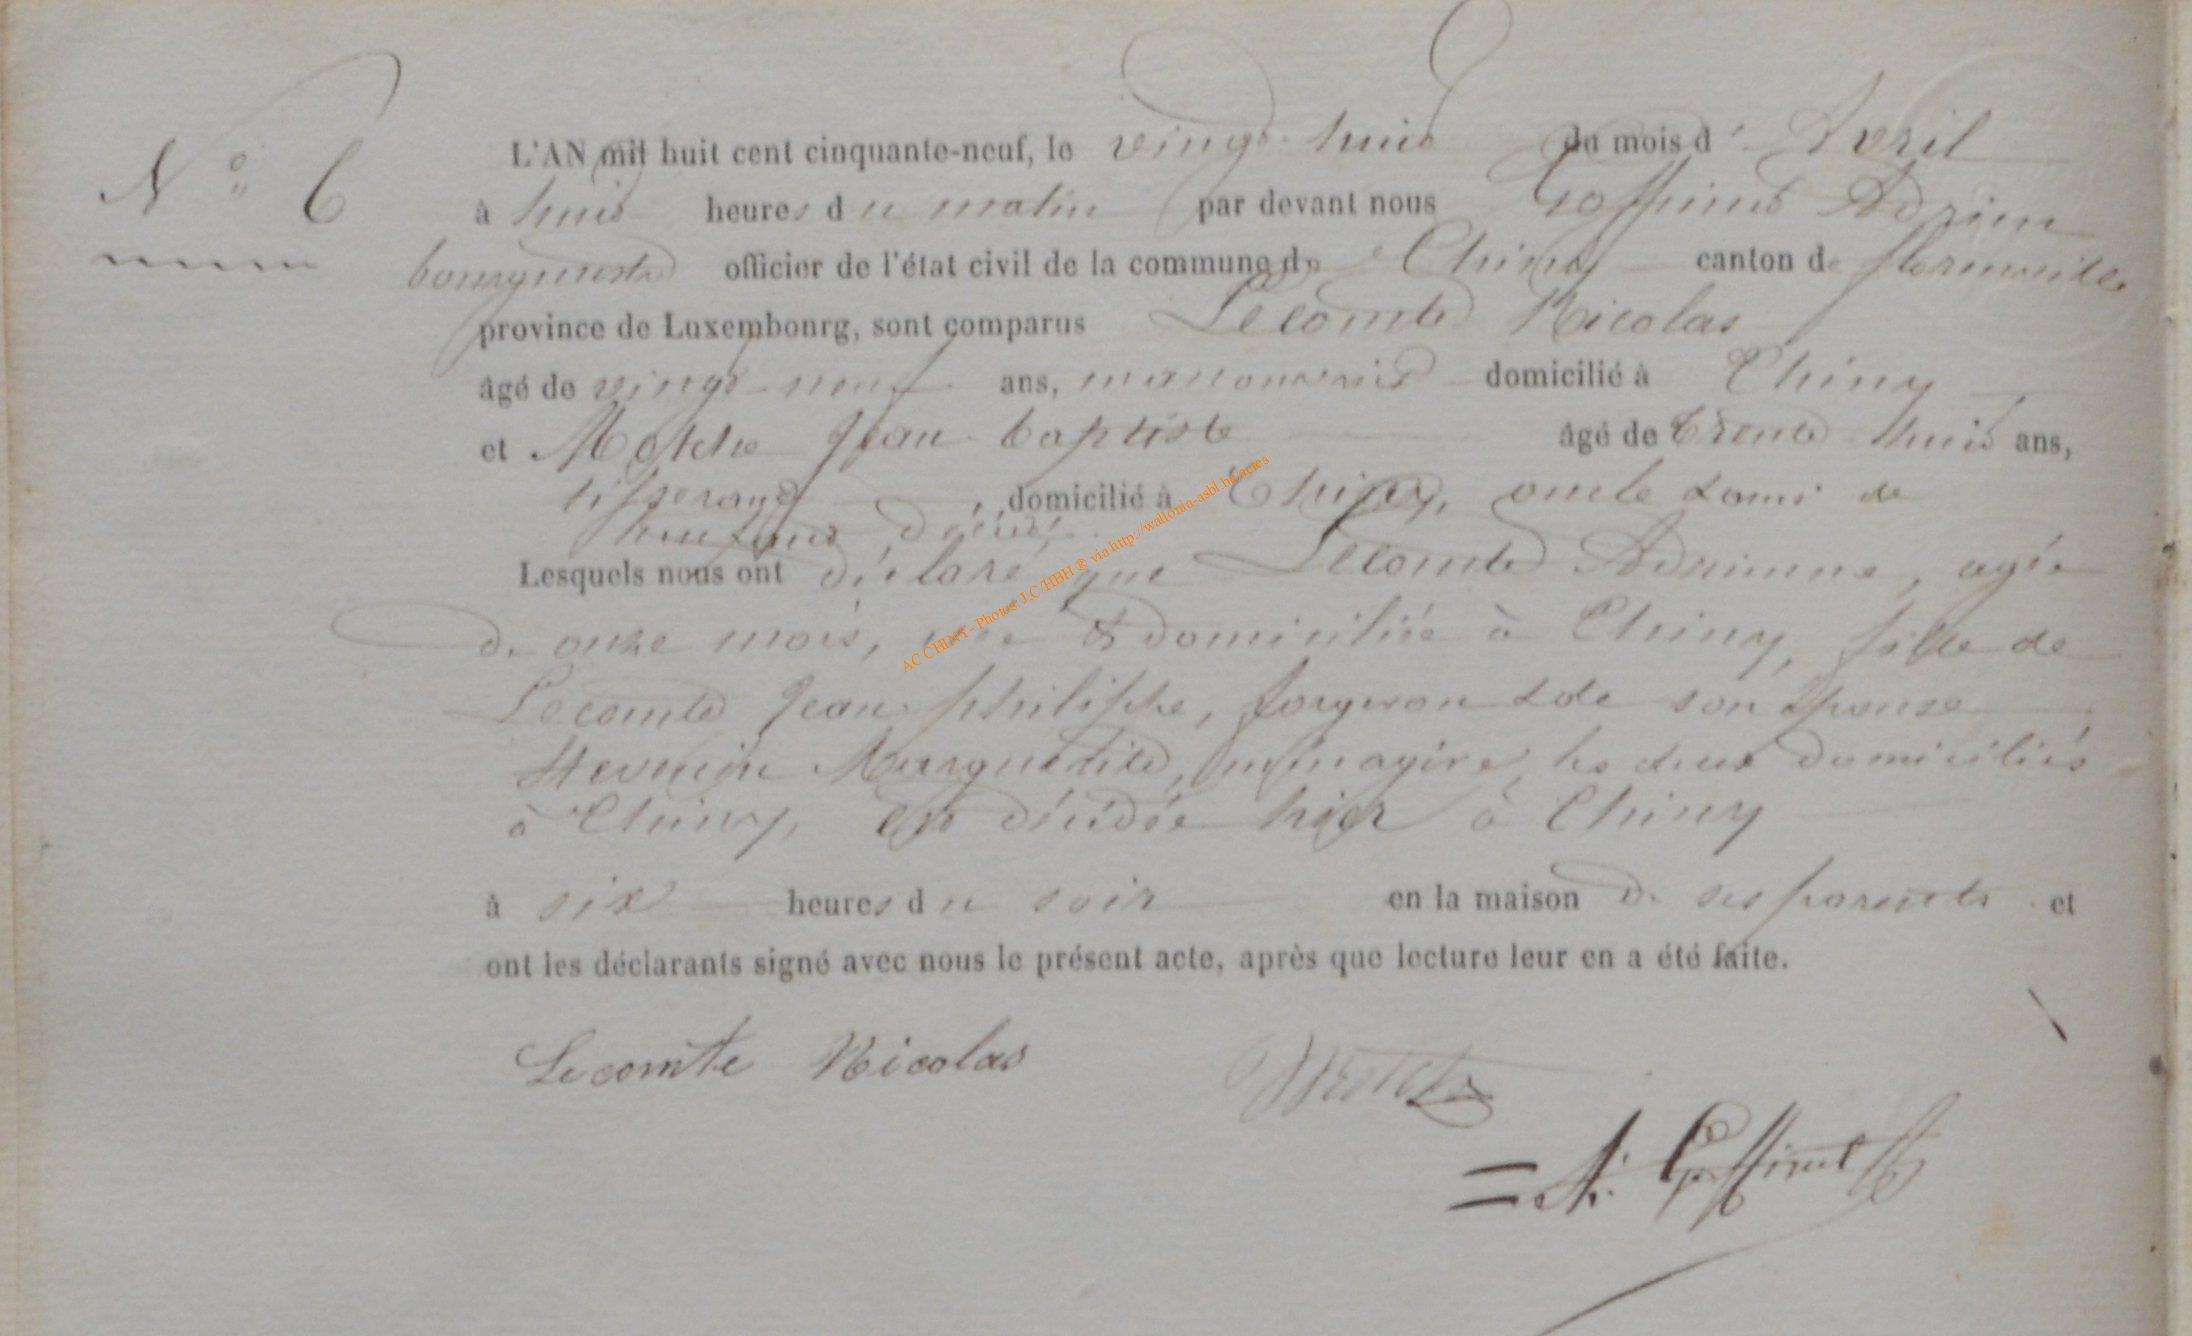 N° 6
L'AN mil huit cent cinquante-neuf, le vingt-huit du mois d'Avril
à huit heures du matin par devant nous Goffinet Adrien
bourgmestre officier de l'état civil de la commune de Chiny canton de florenville
province de Luxembourg, sont comparus Lecomte Nicolas
âgé de vingt-neuf ans, manouvrier domicilié à Chiny
et Motche Jean baptiste âgé de trente huit ans,
tisserand domicilié à Chiny, oncle & ami de
l'enfant décédé.
Lesquels nous ont déclaré que Lecomte Adrienne, agée
de onze mois, née & domiciliée à Chiny, fille de
Lecomte Jean-philippe, forgeron & de son épouse
Hevenin Marguerite, ménagère, les deux domiciliés
à Chiny, est décédée hier à Chiny
à six heures du soir en la maison de ses parents et
ont les déclarants signé avec nous le présent acte, après que lecture leur en a été faite.
Lecomte Nicolas
A. Goffinet
AC CHINY - Photos: J.C/HBH ® via http://wallonia-asbl.be/actes